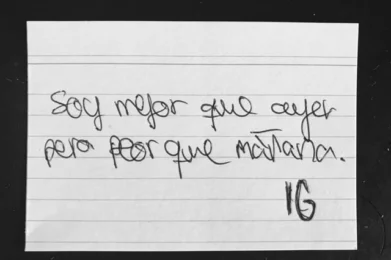 Soy mejor que ayer
pero peor que mañana.
IG